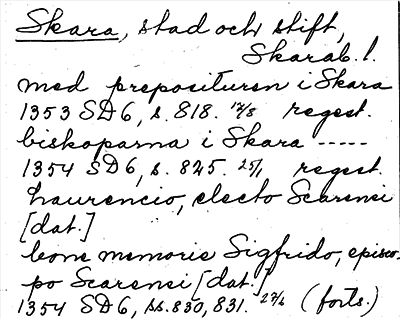 Skara, stad och stift,
Skarab. l.
med preposituren i Skara
1353 SD6, s. 818. 12/8 regest.
biskoparna i Skara -----
1354 SD6, s. 825. 25/1 regest.
Laurencio, electo Scarensi
[dat.]
bone memorie Sigfrido, episco-
po Scarensi [dat.]
1354 SD6, ss. 830, 831. 27/2 (forts.)